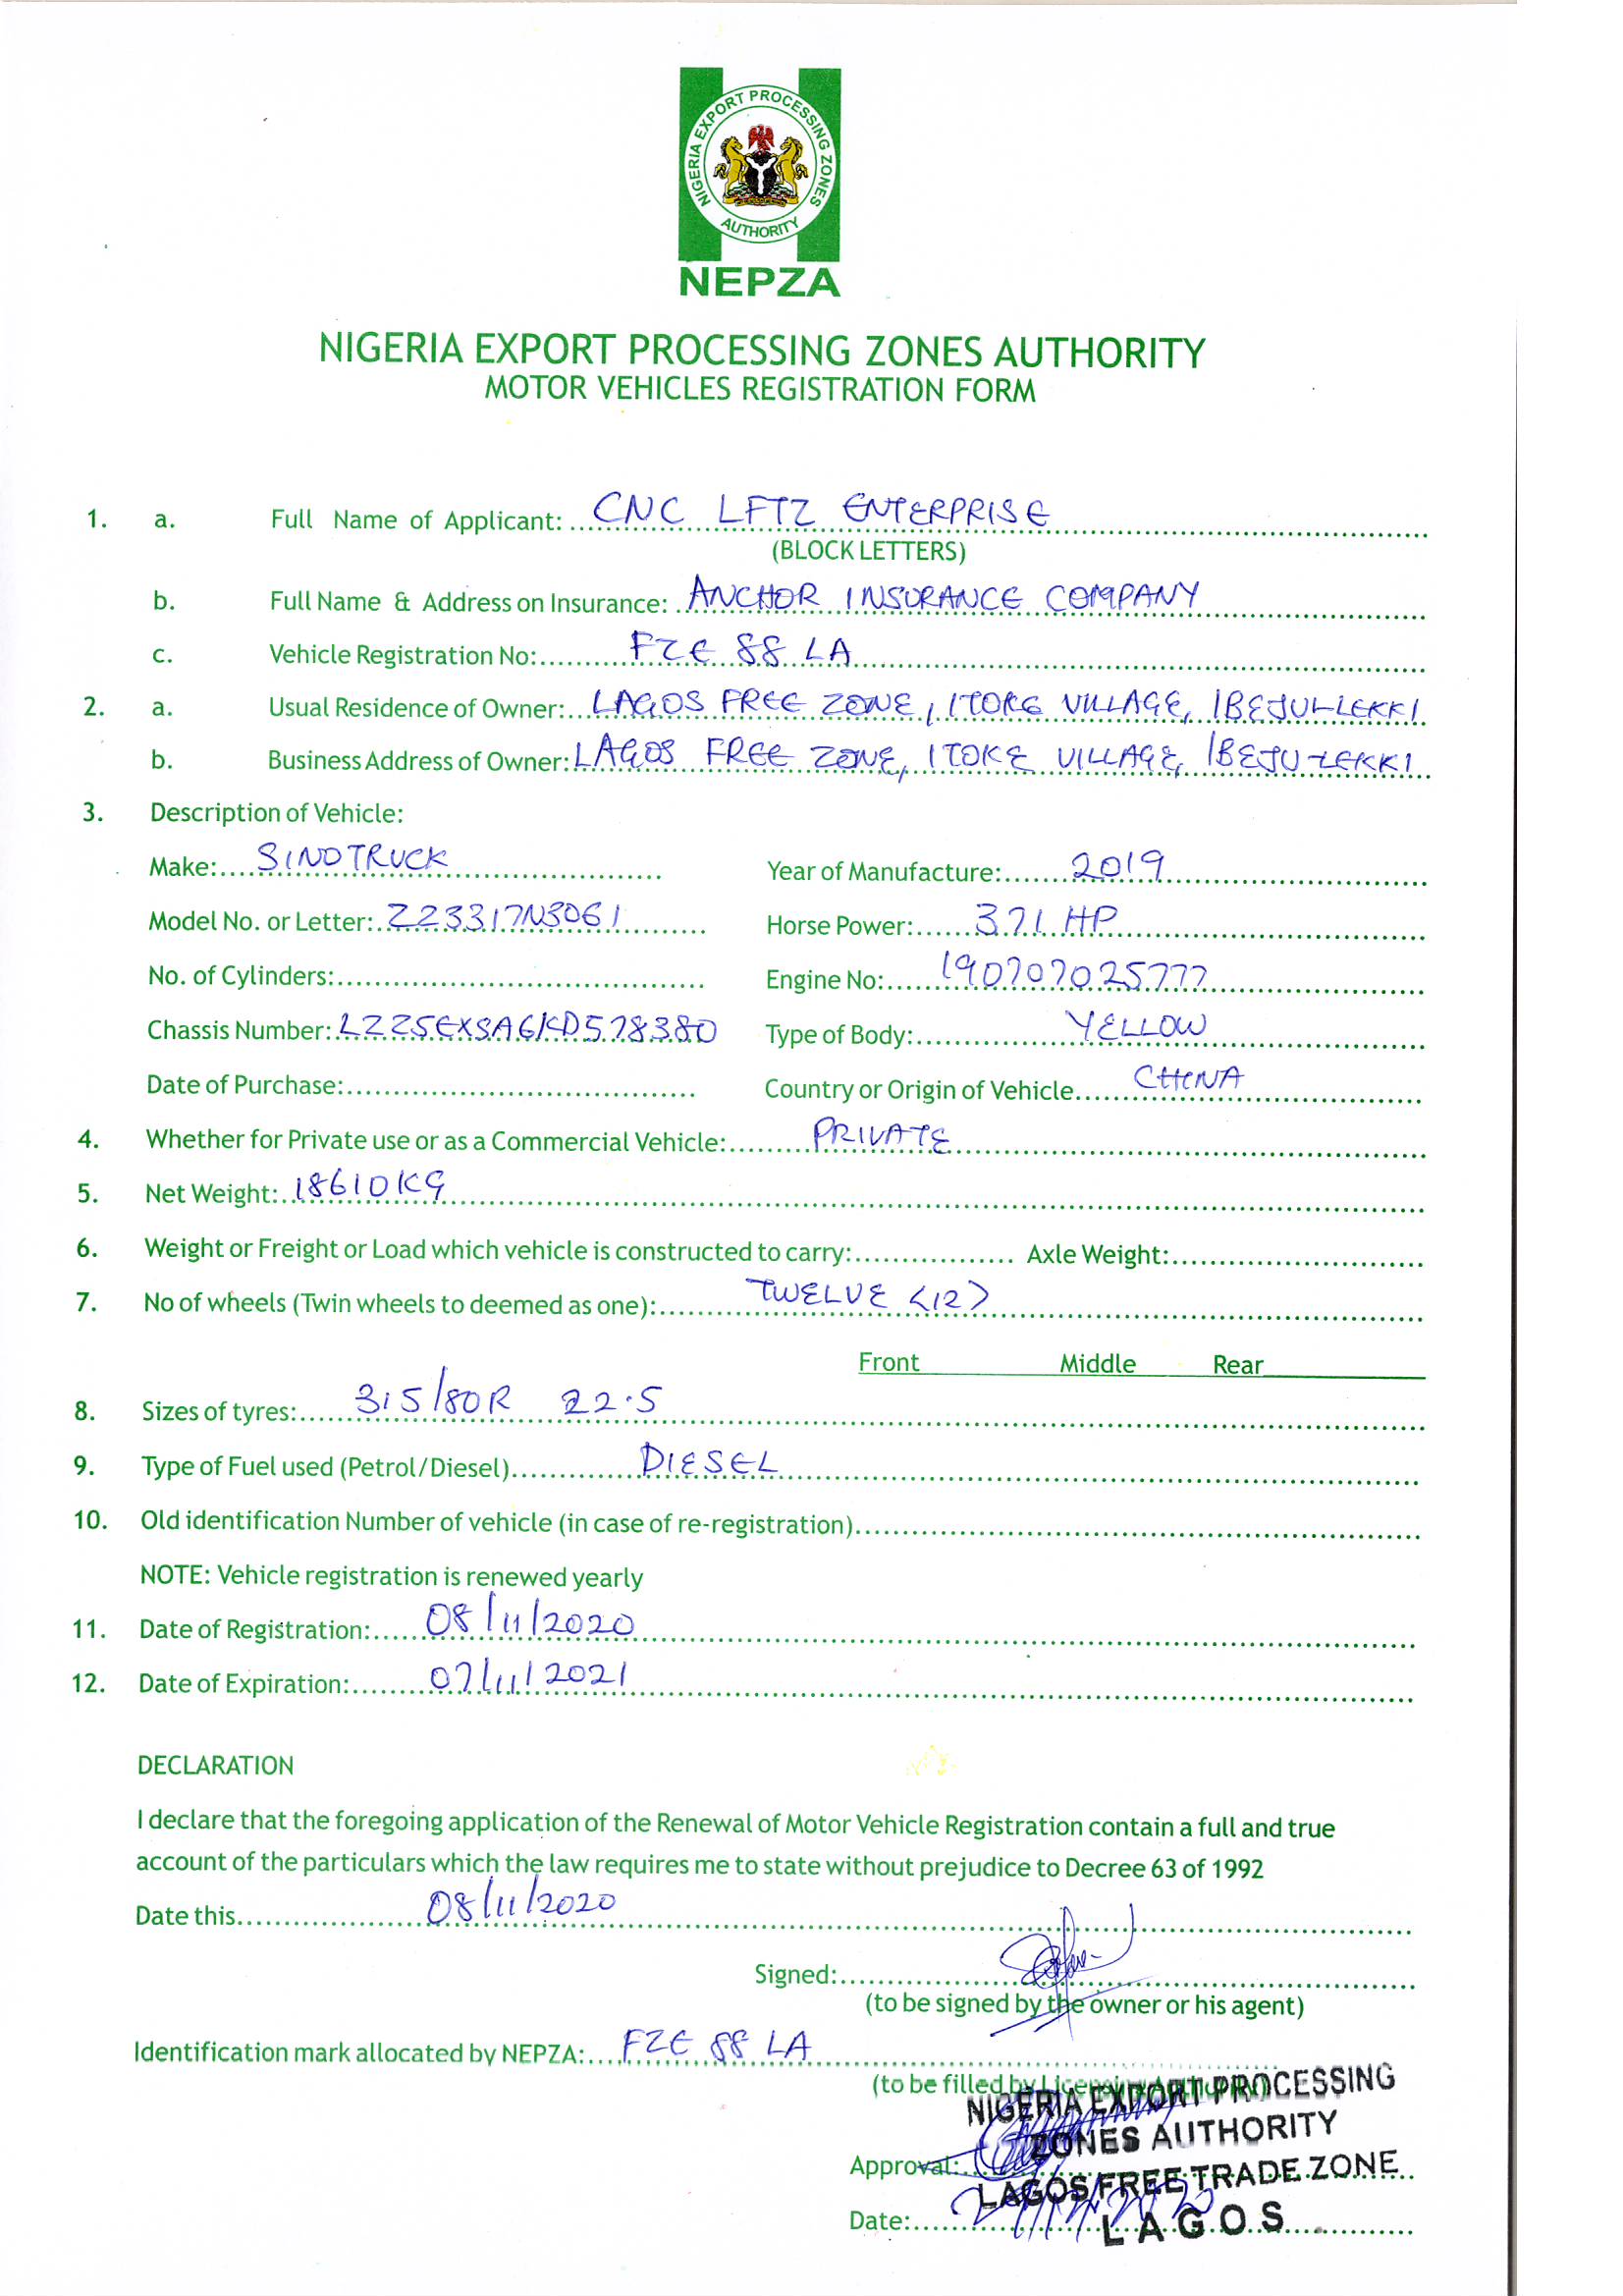 NIGERIA EXPORT PROCESSING ZONES
AUTHORITY
NEPZA
NIGERIA EXPORT PROCESSING ZONES AUTHORITY
MOTOR VEHICLES REGISTRATION FORM
1. a. Full Name of Applicant: CNC LFTZ ENTERPRISE
(BLOCK LETTERS)
b. Full Name & Address on Insurance: ANCHOR INSURANCE COMPANY
c. Vehicle Registration No: FZE 88 LA
2. a. Usual Residence of Owner: LAGOS FREE ZONE, ITOKE VILLAGE, IBEJU-LEKKI
b. Business Address of Owner: LAGOS FREE ZONE, ITOKE VILLAGE, IBEJU-LEKKI
3. Description of Vehicle:
Make: SINOTRUCK Year of Manufacture: 2019
Model No. or Letter: ZZ3317N3061 Horse Power: 371 HP
No. of Cylinders: Engine No: 190707025777
Chassis Number: LZZ5EXSA6KD578380 Type of Body: YELLOW
Date of Purchase: Country or Origin of Vehicle CHINA
4. Whether for Private use or as a Commercial Vehicle: PRIVATE
5. Net Weight: 18610KG
6. Weight or Freight or Load which vehicle is constructed to carry: Axle Weight:
7. No of wheels (Twin wheels to deemed as one): TWELVE <12>
Front Middle Rear
8. Sizes of tyres: 315/80R 22.5
9. Type of Fuel used (Petrol/Diesel) DIESEL
10. Old identification Number of vehicle (in case of re-registration)
NOTE: Vehicle registration is renewed yearly
11. Date of Registration: 08/11/2020
12. Date of Expiration: 07/11/2021
DECLARATION
I declare that the foregoing application of the Renewal of Motor Vehicle Registration contain a full and true
account of the particulars which the law requires me to state without prejudice to Decree 63 of 1992
Date this 08/11/2020
Signed:
(to be signed by the owner or his agent)
Identification mark allocated by NEPZA: FZE 88 LA
(to be filled by Licensing Authority)
NIGERIA EXPORT PROCESSING
ZONES AUTHORITY
Approval:
LAGOS FREE TRADE ZONE
Date:
LAGOS